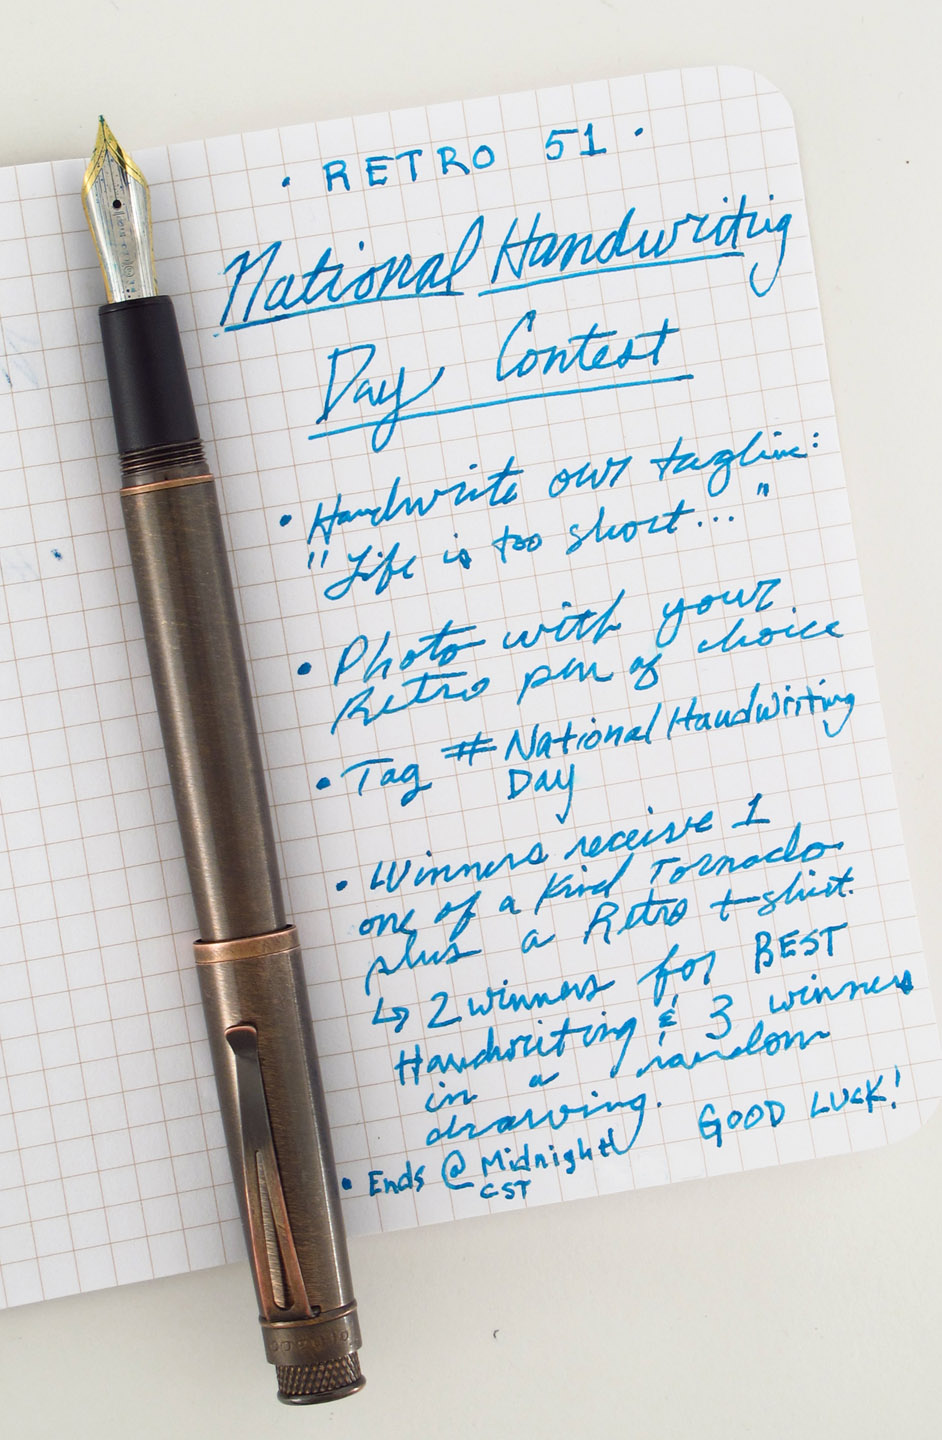 • RETRO 51 •
National Handwritig
Day Contest
• Handwrite our tagline:
"Life is too short..."
• Photo with your
Retro pen of choice
• Tag #NationalHandwriting
Day
• Winners receive 1
one of a kind Tornado
plus a Retro t-shirt.
↳ 2 winners for BEST
Handwriting & 3 winners
in a random
drawing.
GOOD LUCK!
• Ends @ Midnight
CST